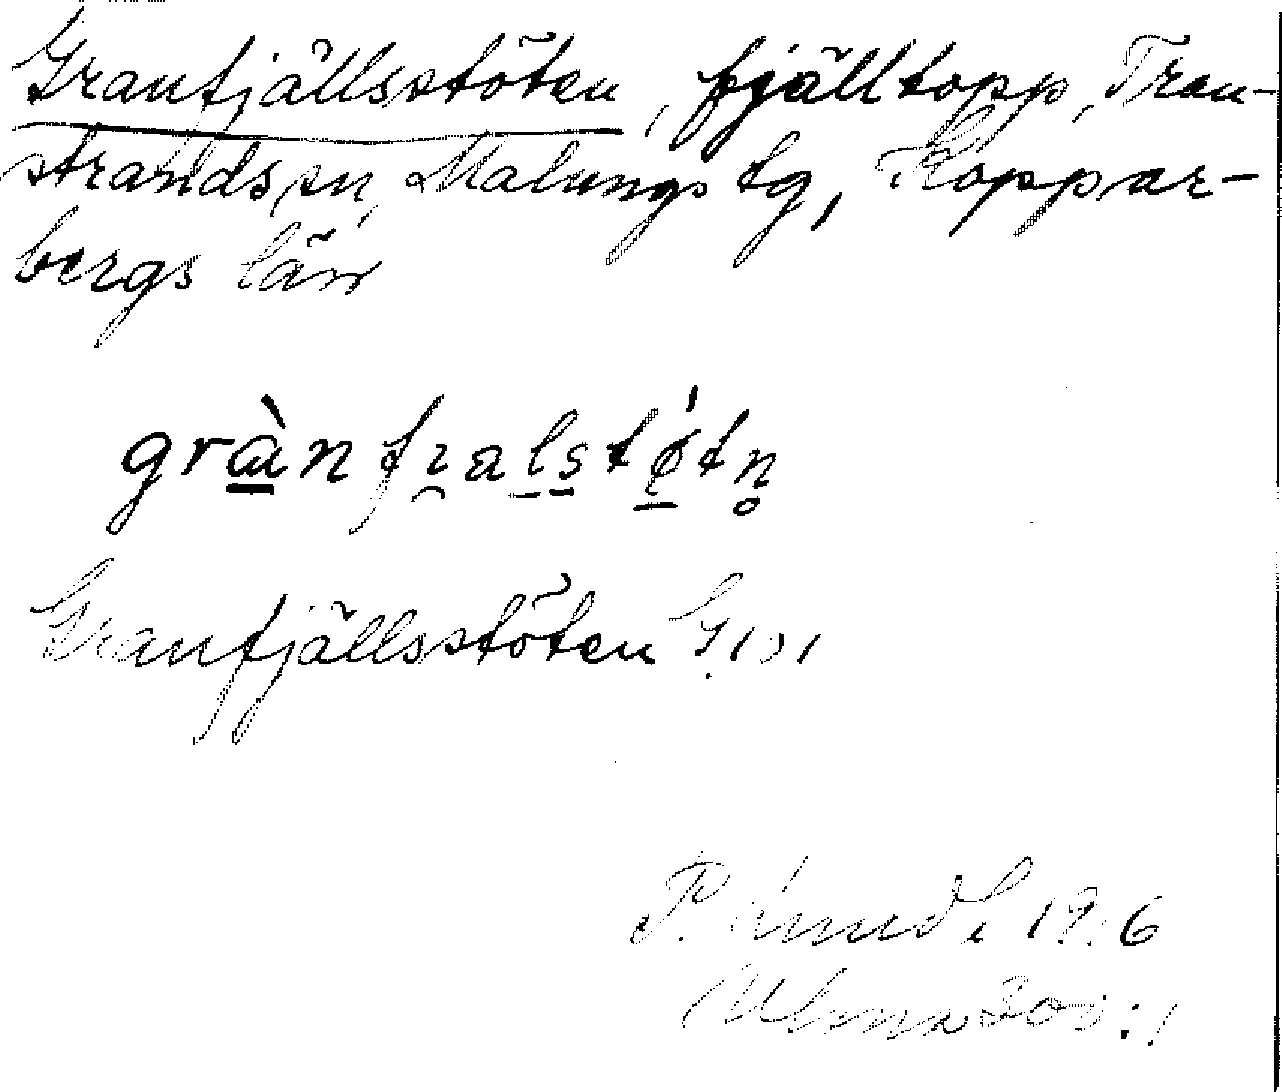 Granfjällsstöten, fjälltopp, Tran-
strands sn, Malungs tg, Koppar-
bergs län
grànfɪalstǿtn̥
Granfjällsstöten
P. 19